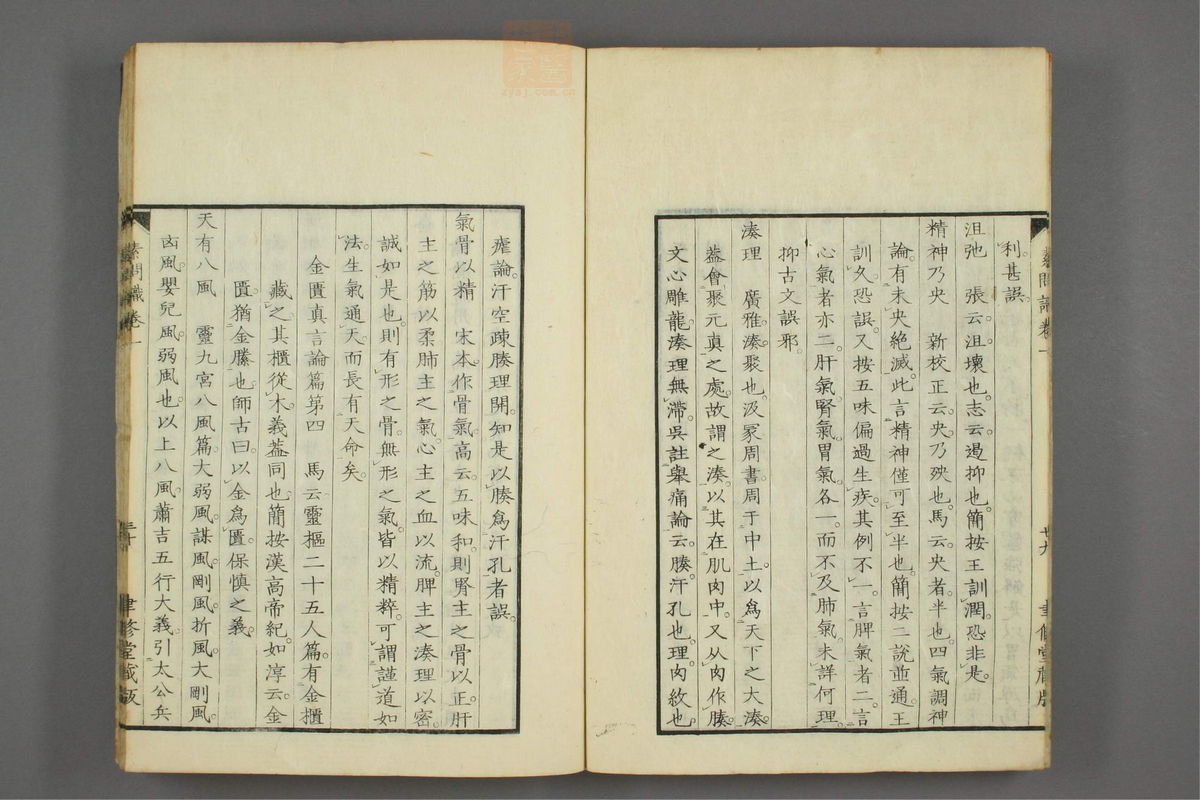 利甚誤。
沮弛　張云。沮壞也。志云。遏抑也。簡按王訓潤。恐非是。
精神乃央　新校正云。央乃殃也。馬云。央者。半也。四氣調神
論。有未央絕滅。此言精神僅可至半也。簡按二說並通。王
訓久。恐誤。又按五味偏過生疾。其例不一。言脾氣者二。言
心氣者亦二。肝氣腎氣胃氣各一。而不及肺氣。未詳何理。
抑古文誤邪。
湊理　廣雅。湊。聚也。汲冢周書。周于中土。以為天下之大湊。
蓋會聚元真之處。故謂之湊。以其在肌肉中。又从肉作腠。
文心雕龍。湊理無滯。吳註舉痛論云。腠。汗孔也。理。肉紋也。
瘧論。汗空疎腠理開。知是以腠為汗孔者誤。
氣骨以精　宋本作骨氣。高云。五味和。則腎主之骨以正。肝
主之筋以柔。肺主之氣。心主之血以流。脾主之湊理以密。
誠如是也。則有形之骨。無形之氣。皆以精粹。可謂謹道如
法。生氣通天。而長有天命矣。
金匱真言論篇第四　馬云。靈樞二十五人篇。有金櫃
藏之。其櫃從木。義蓋同也。簡按漢高帝紀。如淳云。金
匱。猶金縢也。師古曰。以金為匱。保慎之義。
天有八風　靈九宮八風篇。大弱風。謀風。剛風。折風。大剛風。
凶風。嬰兒風。弱風也。以上八風。蕭吉五行大義。引太公兵
素問識卷一
廿九
聿修堂藏版
素問識卷一
三十
聿修堂藏版
zysj.com.cn